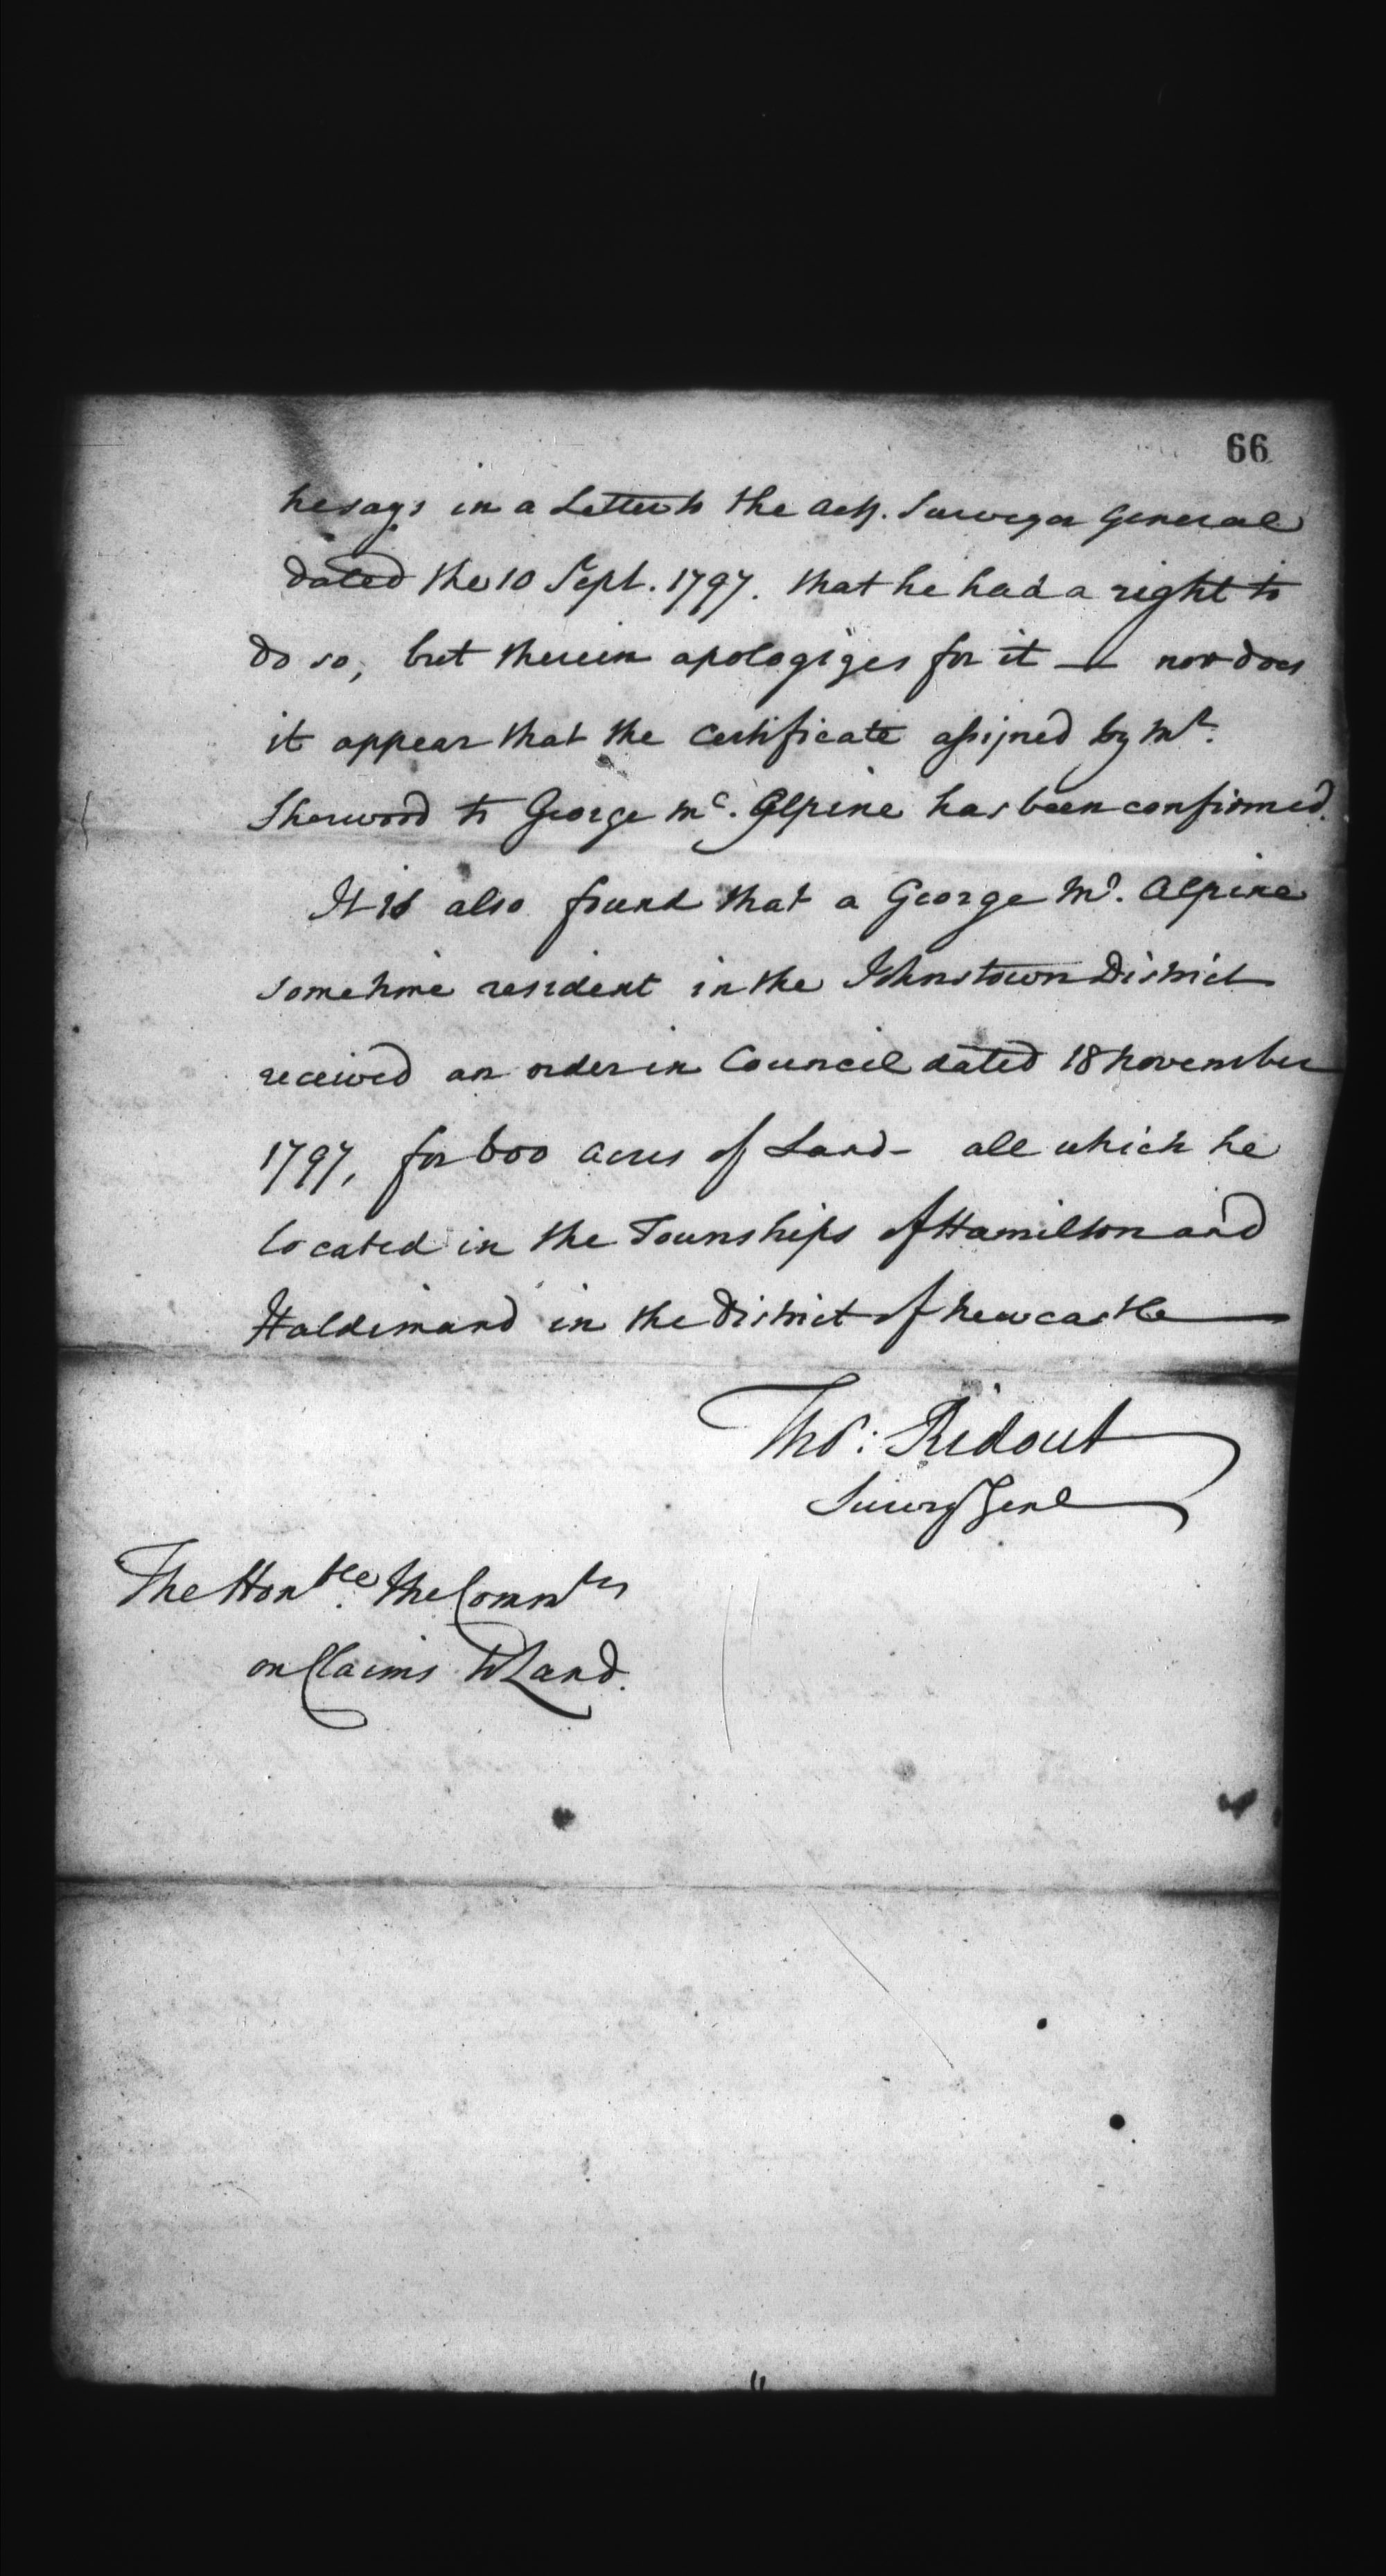 66
he says in a Letter to the Actg. Surveyor General
dated the 10 Sept. 1797. that he had a right to
do so, but therein apologizes for it — nor does
it appear that the Certificate assigned by Mr.
Sherwood to George Mc. Alpine has been confirmed.
It is also found that a George Mc. Alpine
sometime resident in the Johnstown District
received an order in Council dated 18 November
1797, for 600 acres of Land - all which he
located in the Townships of Hamilton and
Haldimand in the District of Newcastle —
Thos: Ridout
Survey Genl
The Honble. the Commrs
on Claims to Land.